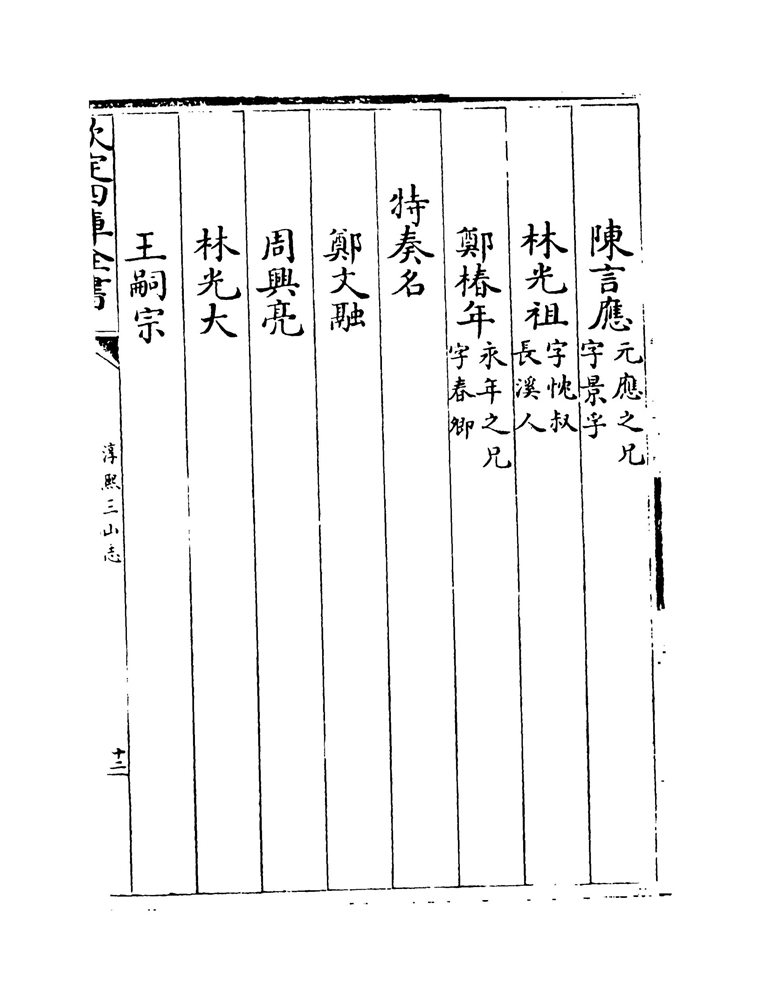 陳言應元應之兄字景孚
林光祖字忱叔長溪人
鄭椿年永年之兄字春卿
特奏名
鄭文融
周興亮
林光大
王嗣宗
欽定四庫全書
淳熙三山志
十二